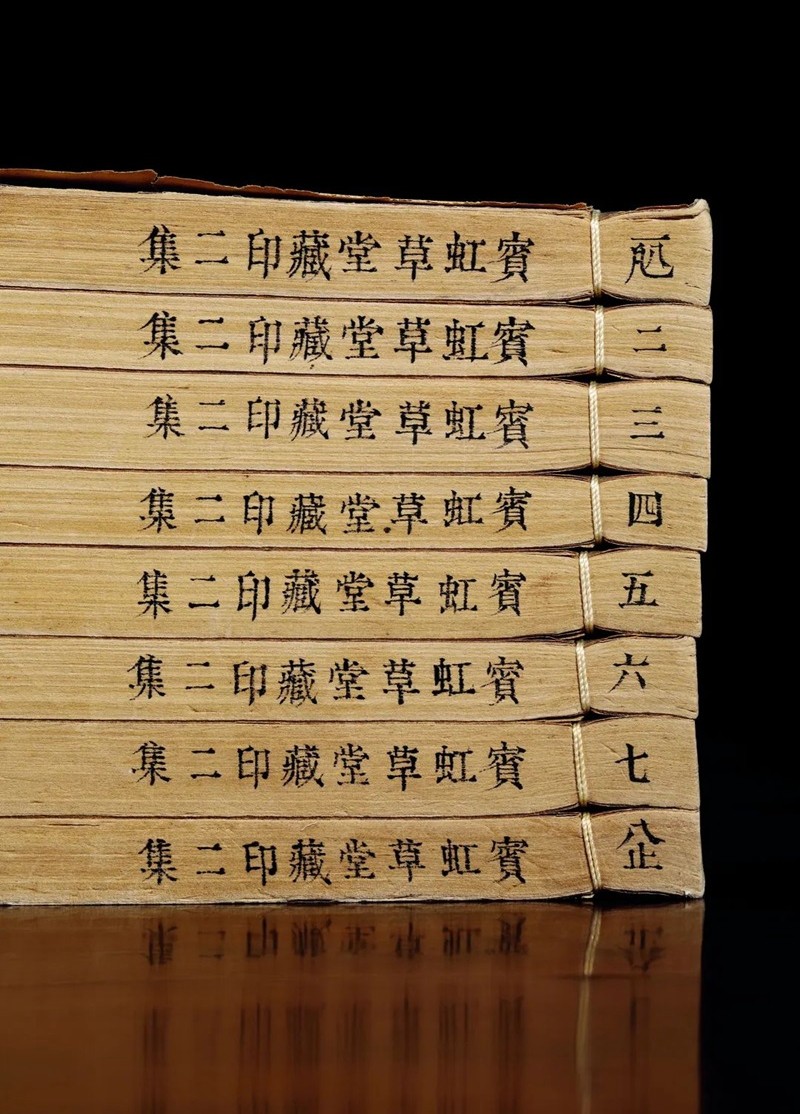 一 賓虹草堂藏印二集
二 賓虹草堂藏印二集
三 賓虹草堂藏印二集
四 賓虹草堂藏印二集
五 賓虹草堂藏印二集
六 賓虹草堂藏印二集
七 賓虹草堂藏印二集
八止 賓虹草堂藏印二集